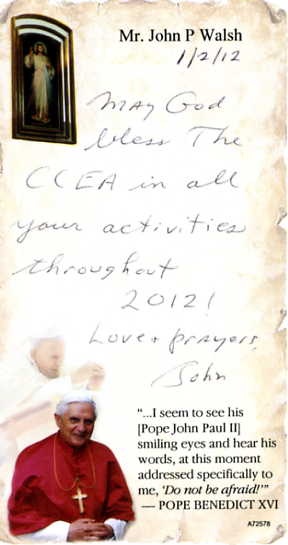 Mr. John P Walsh
1/2/12
May God
bless The
CCEA in all
your activities
throughout
2012!
Love + prayers,
John
“...I seem to see his
[Pope John Paul II]
smiling eyes and hear his
words, at this moment
addressed specifically to
me, ‘Do not be afraid!’”
— POPE BENEDICT XVI
A72578